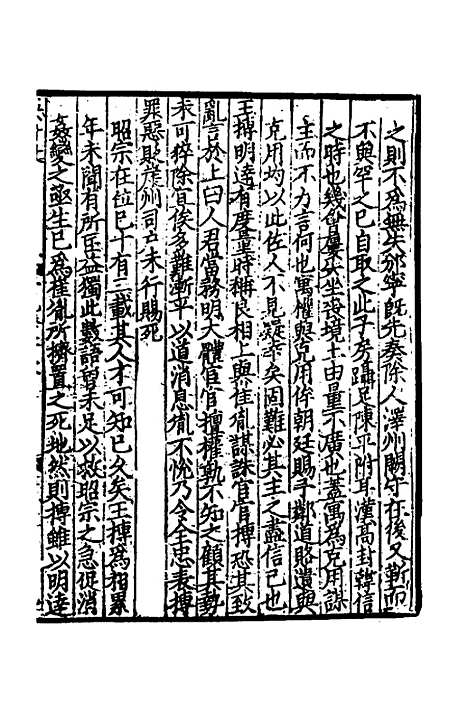 之則不為無失邠寧既先奏除人澤州闕守在後又靳而
不與罕之已自取之此子房躡足陳平附耳漢高封韓信
之時也幾會屢失坐喪境土由量不廣也蓋寓為克用謀
主而不力言何也寓權與克用侔朝廷賜予鄰道賂遺與
克用均以此佐人不見疑幸矣固難必其主之盡信己也
王摶明達有度量時稱良相上與崔胤謀誅宦官摶恐其致
亂言於上曰人君當務明大體宦官擅權孰不知之顧其勢
未可猝除宜俟多難漸平以道消息胤不悅乃令全忠表摶
罪惡貶崖州司戶未行賜死
昭宗在位已十有二載其人才可知已久矣王摶為相累
年未聞有所匡益獨此數語皆未足以救昭宗之急促消
姦變之亟生已為崔胤所擠置之死地然則摶雖以明達